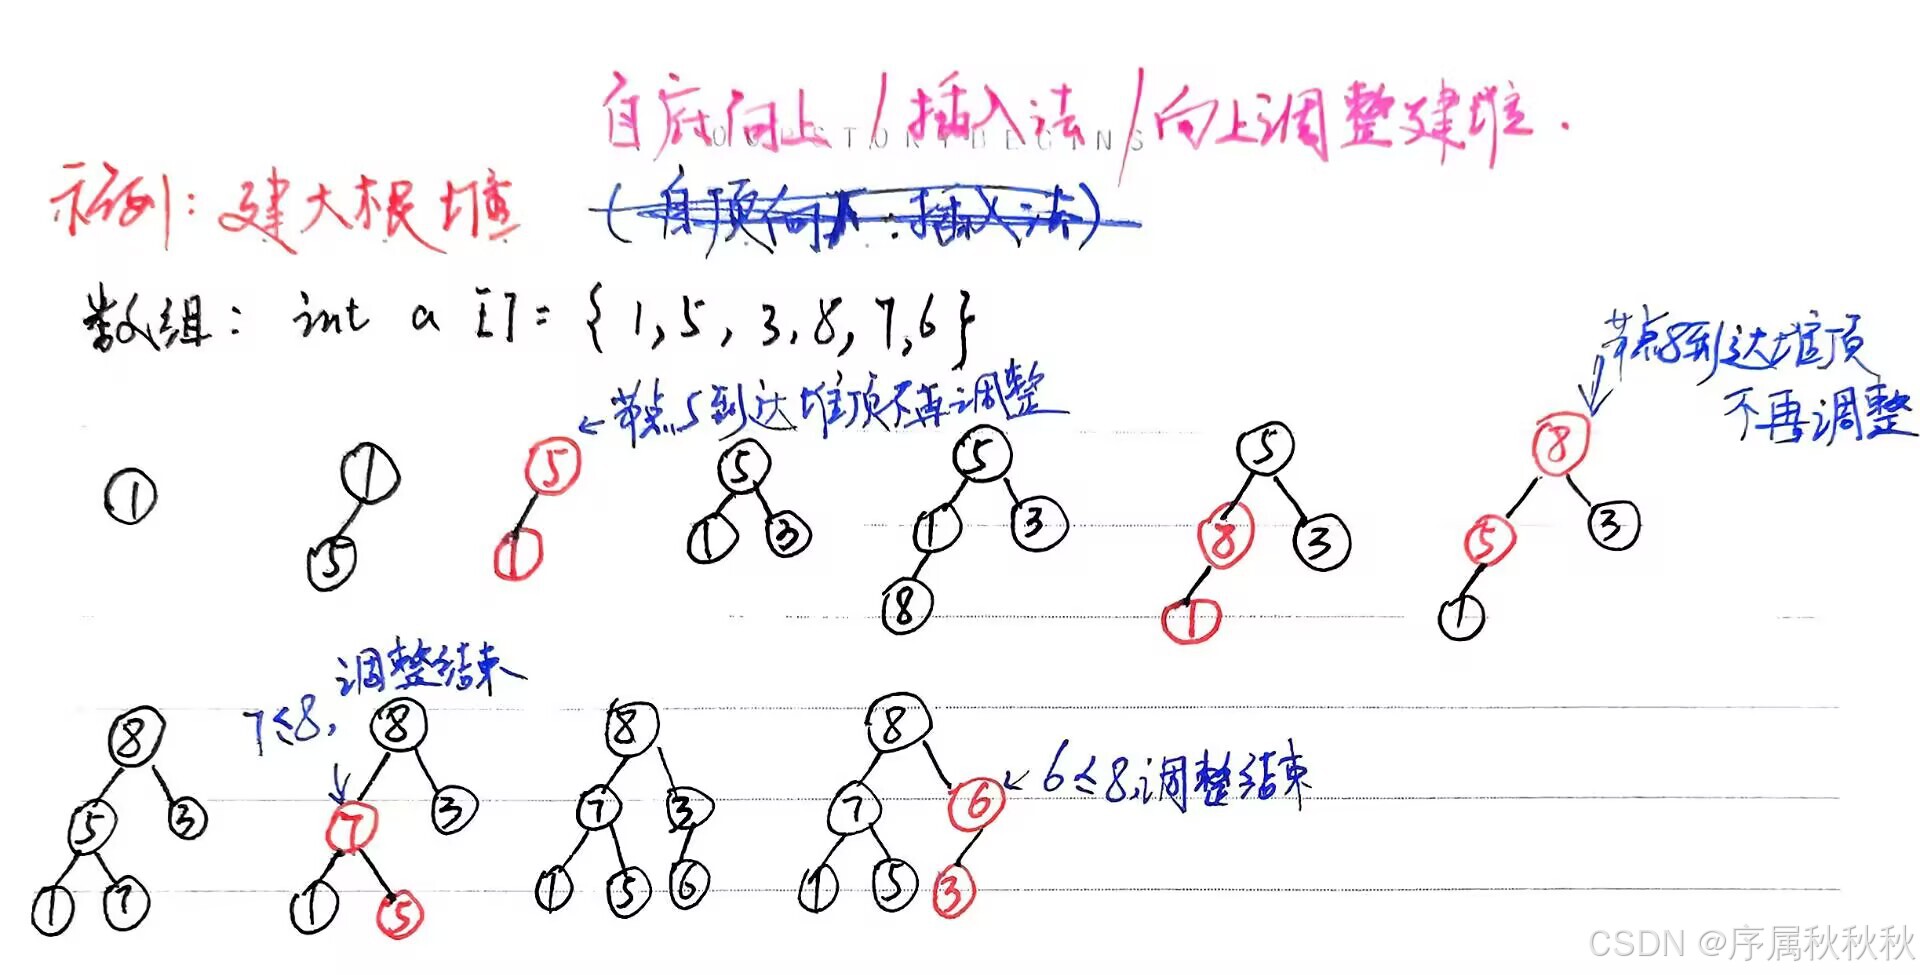 自底向上 / 插入法 / 向上调整建堆.
示例: 建大根堆
(自顶向下: 插入法)
数组: int a []= {1,5,3,8,7,6}
节点8到达堆顶
不再调整
←节点5到达堆顶不再调整
1
1
5
5
1
5
1 3
5
1 3
8
5
8 3
1
8
5 3
1
调整结束
7≤8,
8
5 3
1 7
8
7 3
1 5
8
7 3
1 5 6
8
7 6
1 5 3
←6≤8,调整结束
CSDN @序属秋秋秋